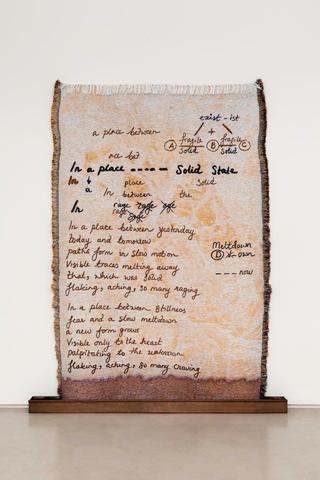 exist-ist
a place between
+
fragile fragile
A Solid B Solid C
In a place ----- Solid State
In place Solid
a In between the
In rage
rage
In a place between yesterday
today and tomorrow
paths form in slow motion
Visible traces melting away
that, which was solid
flaking, aching, so many raging
Meltdown
D
--- now
In a place between stillness
fear and a slow meltdown
a new form grows
Visible only to the heart
palpitating to the unknown
flaking, aching, so many craving